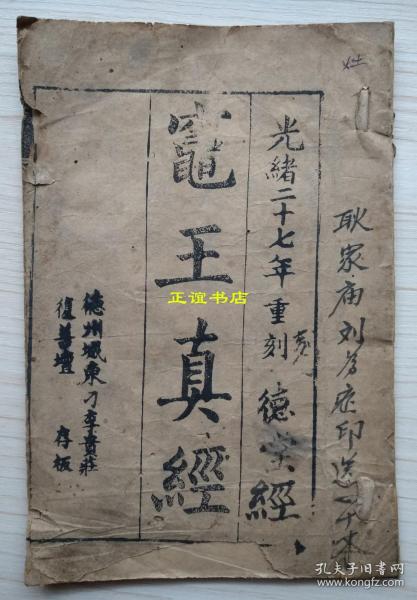 耿家庙刘芳底印送一千本
光緒二十七年重刻
德堂經
竈王真經
德州城東刁李貴莊
復善壇 存板
正谊书店
孔夫子旧书网
book.kongfz.com